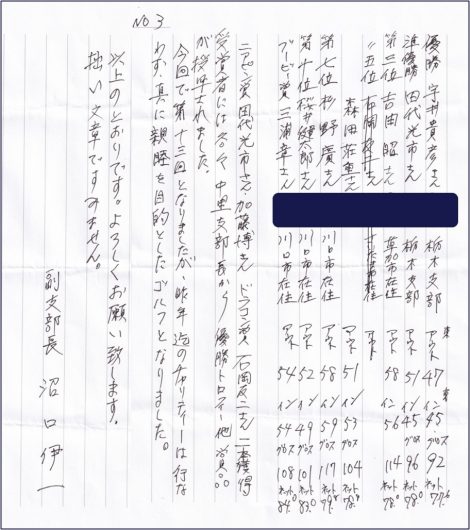 NO 3
優勝 宇井貴彦さん 栃木支部 アウト47 イン45 グロス92 ネット77.6
準優勝 田代光市さん 栃木支部 アウト51 イン45 グロス96 ネット78.0
第三位 吉岡昭さん 草加市在住 アウト58 イン56 114 78.0
〃五位 アウト
森田荘重さん アウト51 イン53 グロス104 ネット78.
第七位 杉野廣さん 川口市在住 アウト58 イン59 グロス117 ネット79.
第十位 桜井健太郎さん 川口市在住 アウト52 イン49 グロス101 ネット83.0
ブービー賞 三浦幸さん 川口市在住 アウト54 イン54 グロス108 ネット84.0
ニアピン賞 田代光市さん・加藤博さん ドラコン賞 石岡反二さん 二本獲得
受賞者には各々 中里支部長から 優勝トロフィー他賞品
が授与されました。
今回で第十三回となりましたが、昨年迄のチャリティーは行な
わず、真に親睦を目的としたゴルフとなりました。
以上のとおりです。よろしくお願い致します。
拙い文章ですみません。
副支部長 沼口伊一